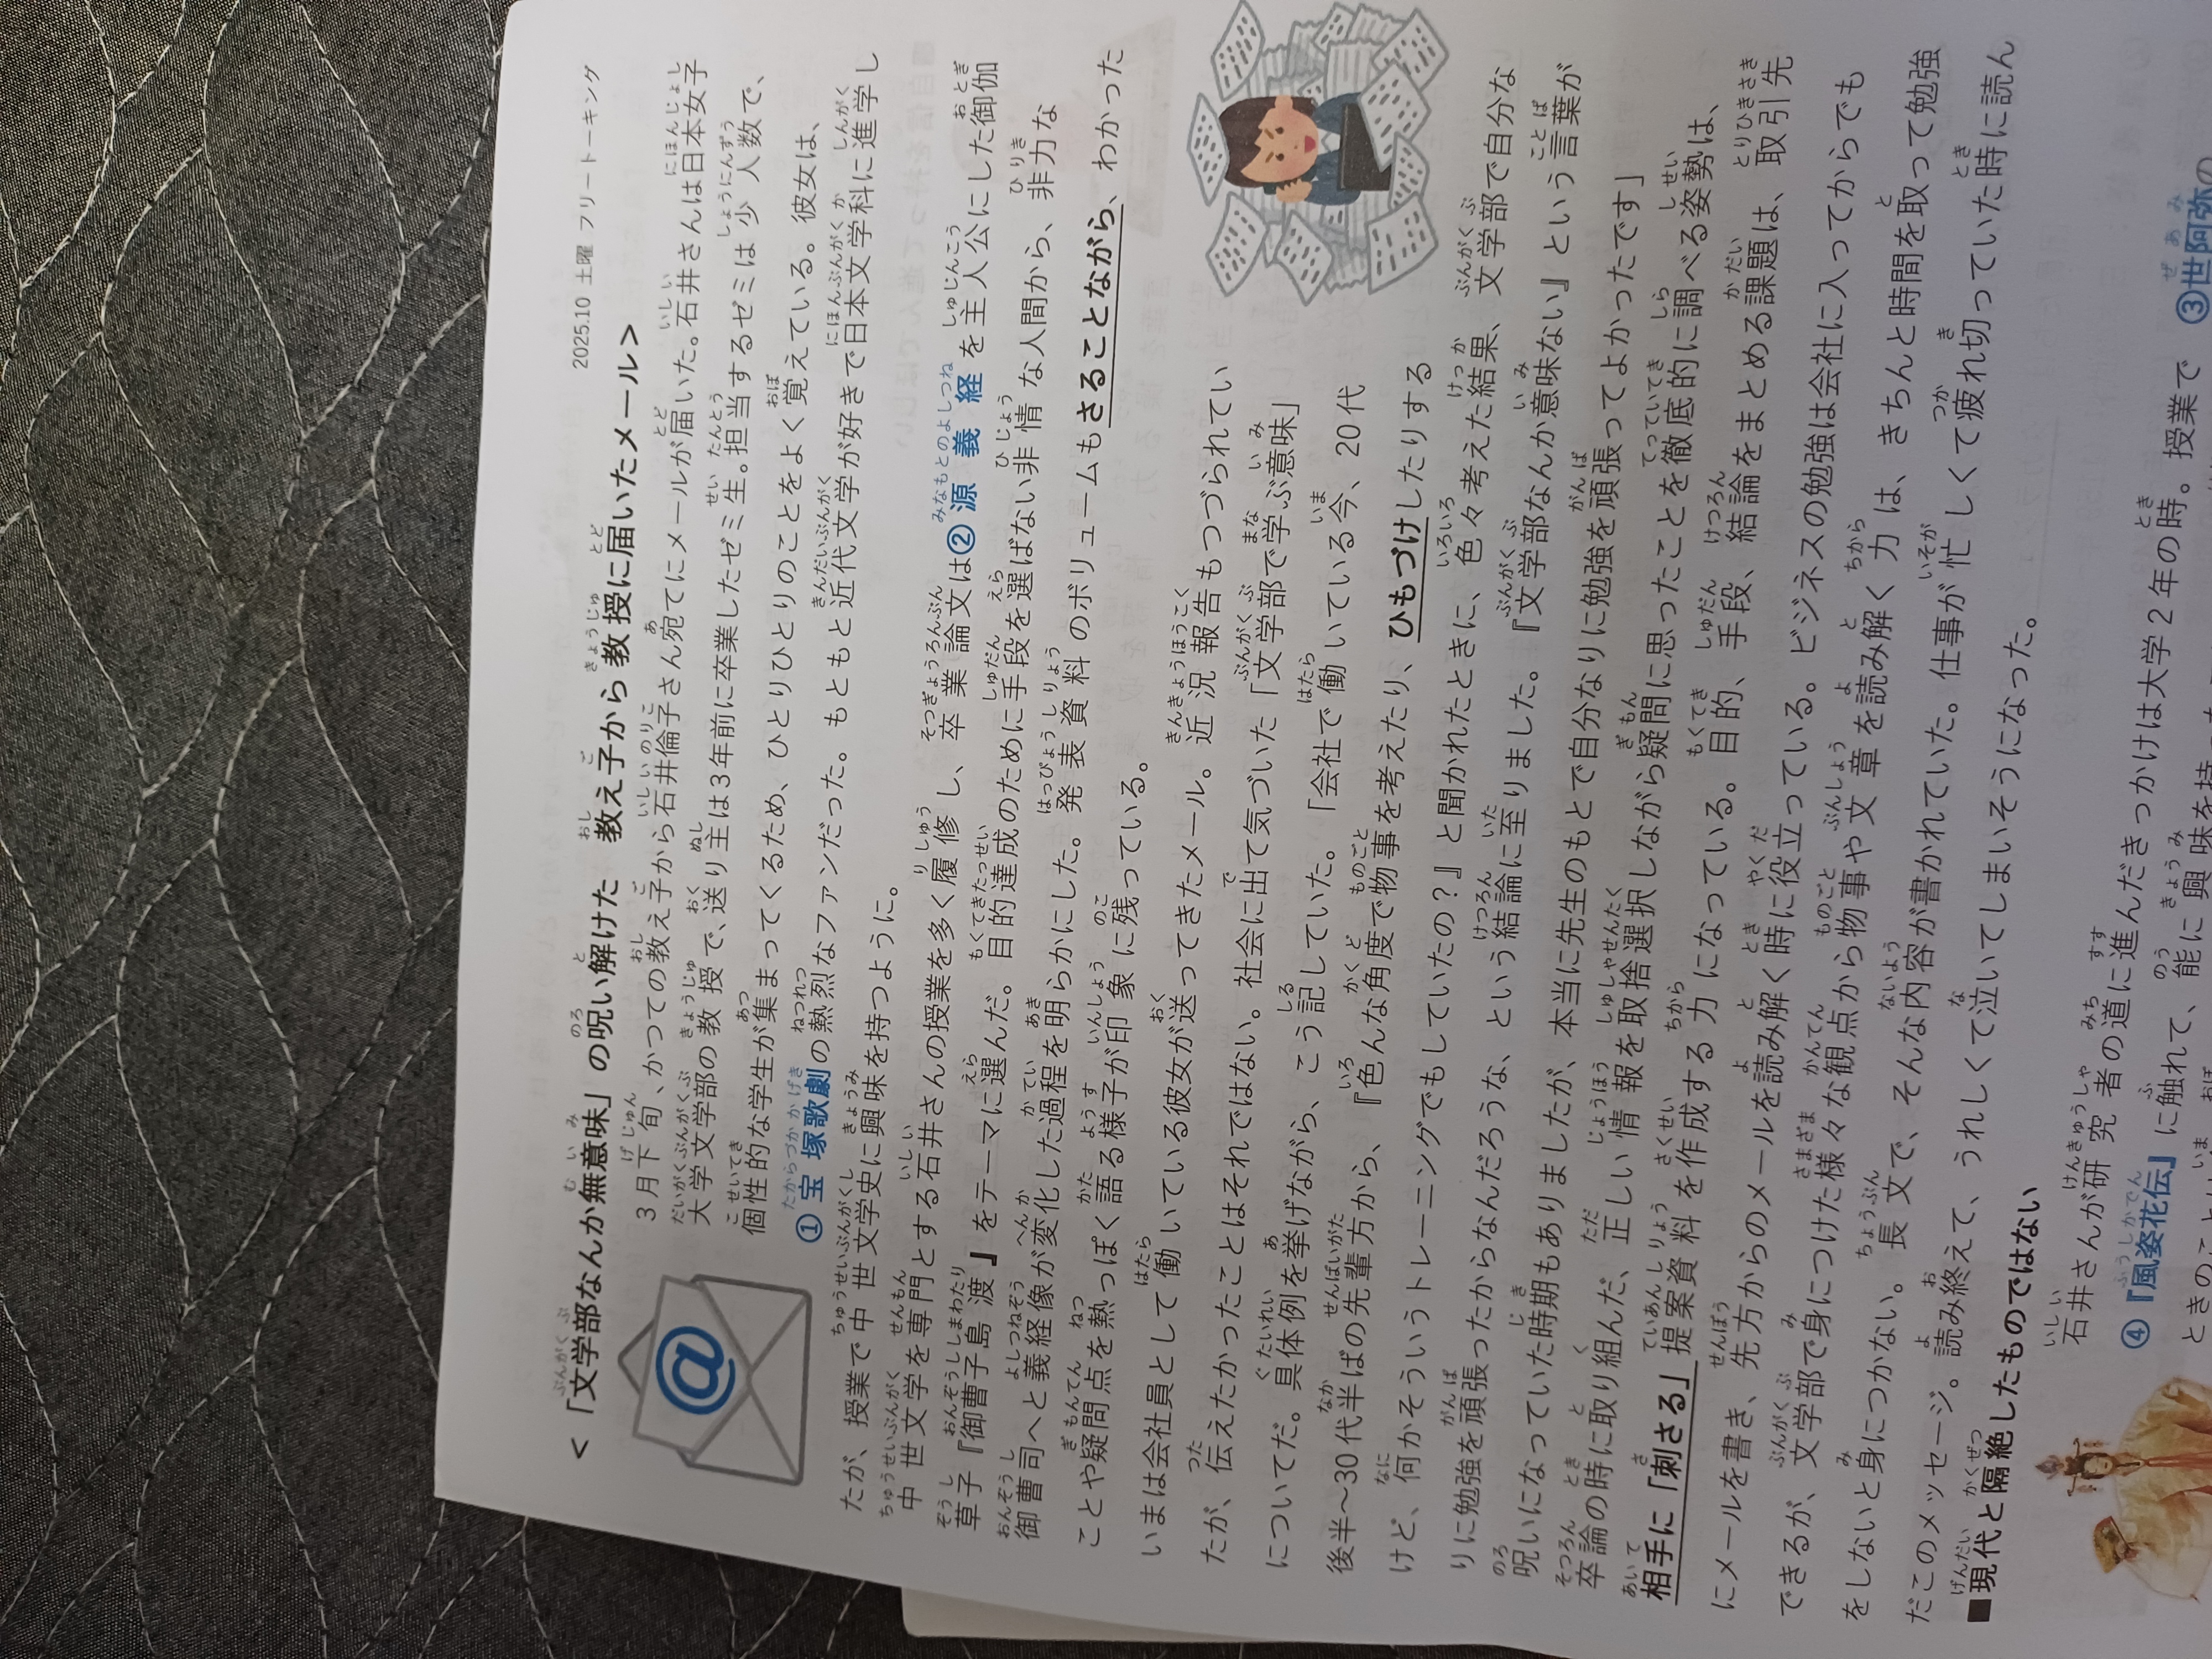 2025.10 土曜 フリートーキング
<「文学部なんか無意味」の呪い解けた 教え子から教授に届いたメール>
3月下旬、かつての教え子から石井倫子さん宛てにメールが届いた。石井さんは日本女子
大学文学部の教授で、送り主は3年前に卒業したゼミ生。担当するゼミは少人数で、
個性的な学生が集まってくるため、ひとりひとりのことをよく覚えている。彼女は、
①宝塚歌劇の熱烈なファンだった。もともと近代文学が好きで日本文学科に進学し
たが、授業で中世文学史に興味を持つように。
中世文学を専門とする石井さんの授業を多く履修し、卒業論文は②源義経を主人公にした御伽
草子『御曹子島渡』をテーマに選んだ。目的達成のために手段を選ばない非情な人間から、非力な
御曹司へと義経像が変化した過程を明らかにした。発表資料のボリュームもさることながら、わかった
ことや疑問点を熱っぽく語る様子が印象に残っている。
いまは会社員として働いている彼女が送ってきたメール。近況報告もつづられてい
たが、伝えたかったことはそれではない。社会に出て気づいた「文学部で学ぶ意味」
についてだ。具体例を挙げながら、こう記していた。「会社で働いている今、20代
後半～30代半ばの先輩方から、『色んな角度で物事を考えたり、ひもづけしたりする
けど、何かそういうトレーニングでもしていたの？』と聞かれたときに、色々考えた結果、文学部で自分な
りに勉強を頑張ったからなんだろうな、という結論に至りました。『文学部なんか意味ない』という言葉が
呪いになっていた時期もありましたが、本当に先生のもとで自分なりに勉強を頑張ってよかったです」
卒論の時に取り組んだ、正しい情報を取捨選択しながら疑問に思ったことを徹底的に調べる姿勢は、
相手に「刺さる」提案資料を作成する力になっている。目的、手段、結論をまとめる課題は、取引先
にメールを書き、先方からのメールを読み解く時に役立っている。ビジネスの勉強は会社に入ってからでも
できるが、文学部で身につけた様々な観点から物事や文章を読み解く力は、きちんと時間を取って勉強
をしないと身につかない。長文で、そんな内容が書かれていた。仕事が忙しくて疲れ切っていた時に読ん
だこのメッセージ。読み終えて、うれしくて泣いてしまいそうになった。
■現代と隔絶したものではない
石井さんが研究者の道に進んだきっかけは大学2年の時。授業で③世阿弥の
④『風姿花伝』に触れて、能に興味を持
ときのこと